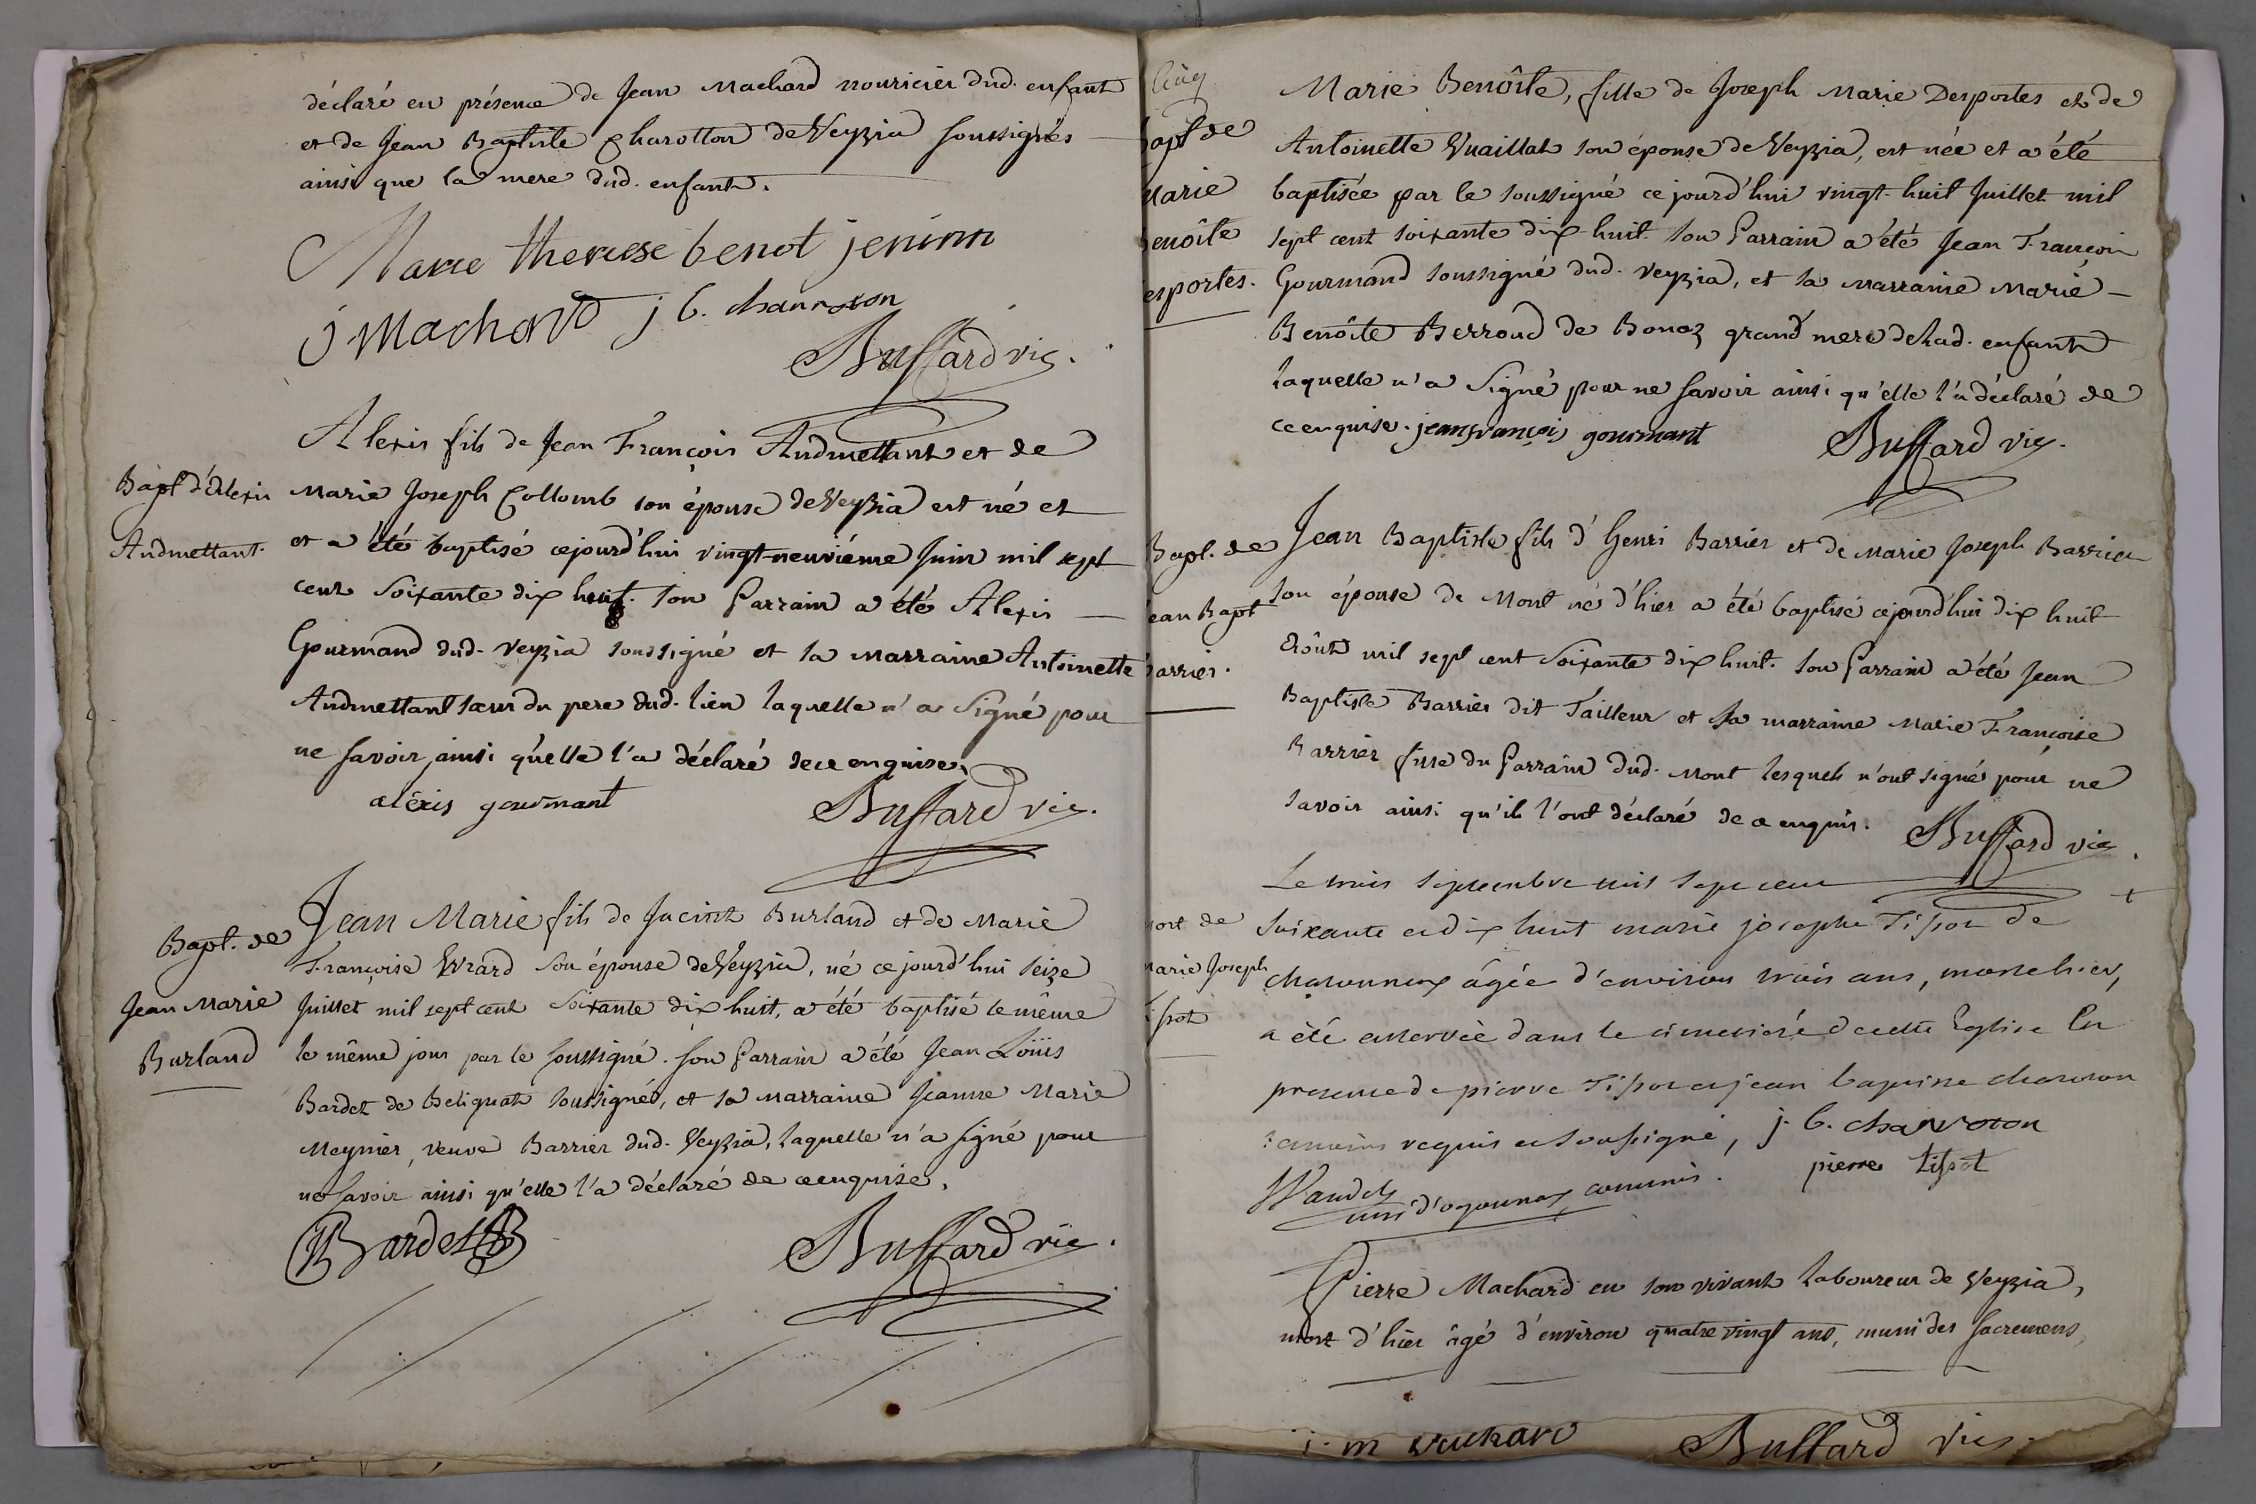 déclaré en présence de Jean Machard nouricier dud. enfant
et de Jean Baptiste Charotton de Veyzia soussignés
ainsi que la mere dud. enfant.
Marie therese benot jeninn
j Machard j b. charroton
Buffard vic.
Bapt. d'Alexis
Andmettant.
Alexis fils de Jean François Andmettant et de
Marie Joseph Collomb son épouse de Veyzia est né et
et a été baptisé cejourd'hui vingt neuviéme Juin mil sept
cent soixante dix huit. son Parrain a été Alexis
Gourmand dud. Veyzia soussigné et sa marraine Antoinette
Andmettant sœur du pere dud. lien laquelle n'a signé pour
ne savoir ainsi qu'elle l'a déclaré de ce enquise.
alexis gourmant
Buffard vic.
Bapt. de
Jean Marie
Burland
Jean Marie fils de Jacint Burland et de Marie
Françoise Evrard son épouse de Veyzia, né ce jourd'hui seize
Juillet mil sept cent soixante dix huit, a été baptisé le même
le même jour par le soussigné. son Parrain a été Jean Loüis
Bardet de Beliquat soussigné, et sa marraine Jeanne Marie
Meynier, veuve Barrier dud. Veyzia, laquelle n'a signé pour
ne savoir ainsi qu'elle l'a déclaré de ce enquise.
Bardet
Buffard vic.
bapt de
Marie
Benôite
Desportes.
Marie Benôite, fille de Joseph Marie Desportes et de
Antoinette Vuaillat son épouse de Veyzia, est née et a été
baptisée par le soussigné ce jourd'hui vingt-huit Juillet mil
sept cent soixante dix-huit. son Parrain a été Jean François
Gourmand soussigné dud. Veyzia, et sa marraine Marie
Benôite Berroud de Bonaz grand mere de lad. enfant
laquelle n'a signé pour ne savoir ainsi qu'elle l'a déclaré de
ce enquise. jean françois gourmant
Buffard vic.
Bapt. de
Jean Bapt
Barrier.
Jean Baptiste fils d'Henri Barrier et de Marie Joseph Barrier
son épouse de Mont né d'hier a été baptisé cejourd'hui dix huit
Août mil sept cent soixante dix huit. son Parrain a été Jean
Baptiste Barrier dit Tailleur et sa marraine Marie Françoise
Barrier fille du Parrain dud. Mont lesquels n'ont signé pour ne
savoir ainsi qu'ils l'ont déclaré de ce enquis.
Buffard vic.
mort de
Marie Joseph
Tissot
Le trois septembre mil sept cent
soixante et dix huit marie josephe Tissot de
charonnex âgée d'environ trois ans, morte hier,
a été enterrée dans le cimetiere de cette Eglise En
presence de pierre Tissot et jean baptiste charoton
temoins requis et soussigné, j. b. charroton
pierre tissot
d'oyonnax commis.
Pierre Machard en son vivant laboureur de Veyzia,
mort d'hier âgé d'environ quatre vingt ans, muni des sacremens
Buffard vic.